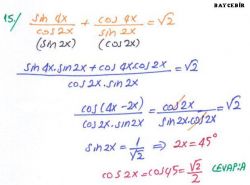 BAYCEBİR
15/ sin 4x/cos2x + cos 4x/sin 2x = √2
(sin2x) (cos2x)
sin 4x.sin2x + cos 4x.cos2x / cos2x.sin2x = √2
cos(4x-2x) / cos2x.sin2x = cos2x / sin2x.cos2x = √2
sin2x = 1/√2 ⇒ 2x = 45°
cos 2x = cos45 = √2/2 CEVAP:A